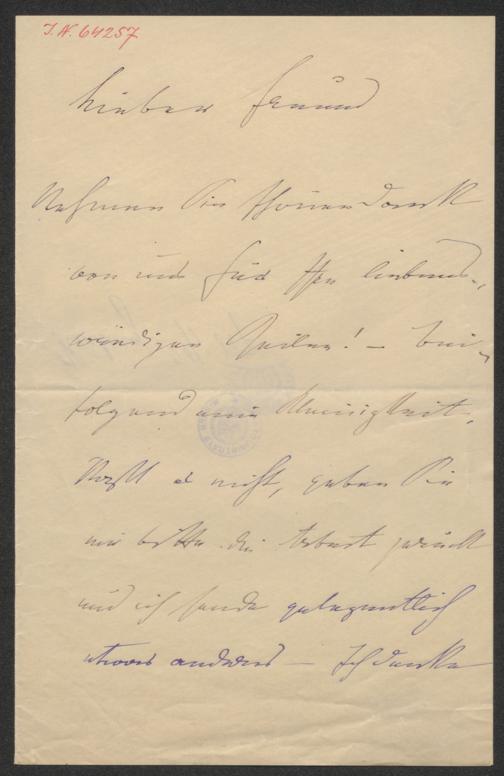 I. N. 64257
Lieber Freund
Nehmen Sie schönen Dank
von uns für Ihre liebens-
würdigen Zeilen! – Bei-
folgend eine Kleinigkeit.
Paßt es nicht, geben Sie
mir bitte die Arbeit zurück
und ich sende gelegentlich
etwas anderes – Ich danke